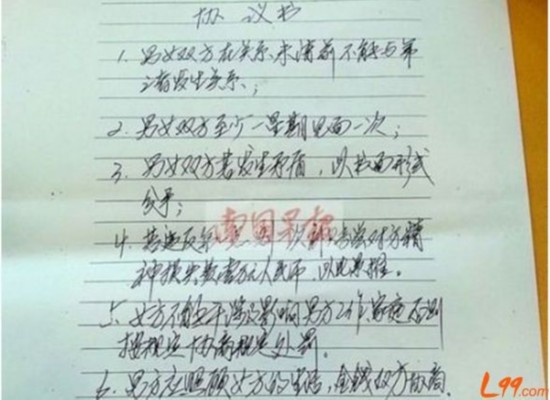 协议书
1. 男女双方在关系未清前不能与第
三者发生关系;
2. 男女双方至少一星期见面一次;
3. 男女双方若发生矛盾,以书面形式
分手;
南国早报
4. 若违反 对方精
神损失数 万人民币,以此为据。
5. 女方不能干涉及影响男方工作、家庭否则
按规定协商规定处罚。
6. 男方应照顾女方的生活,金钱双方协商.
L99.com